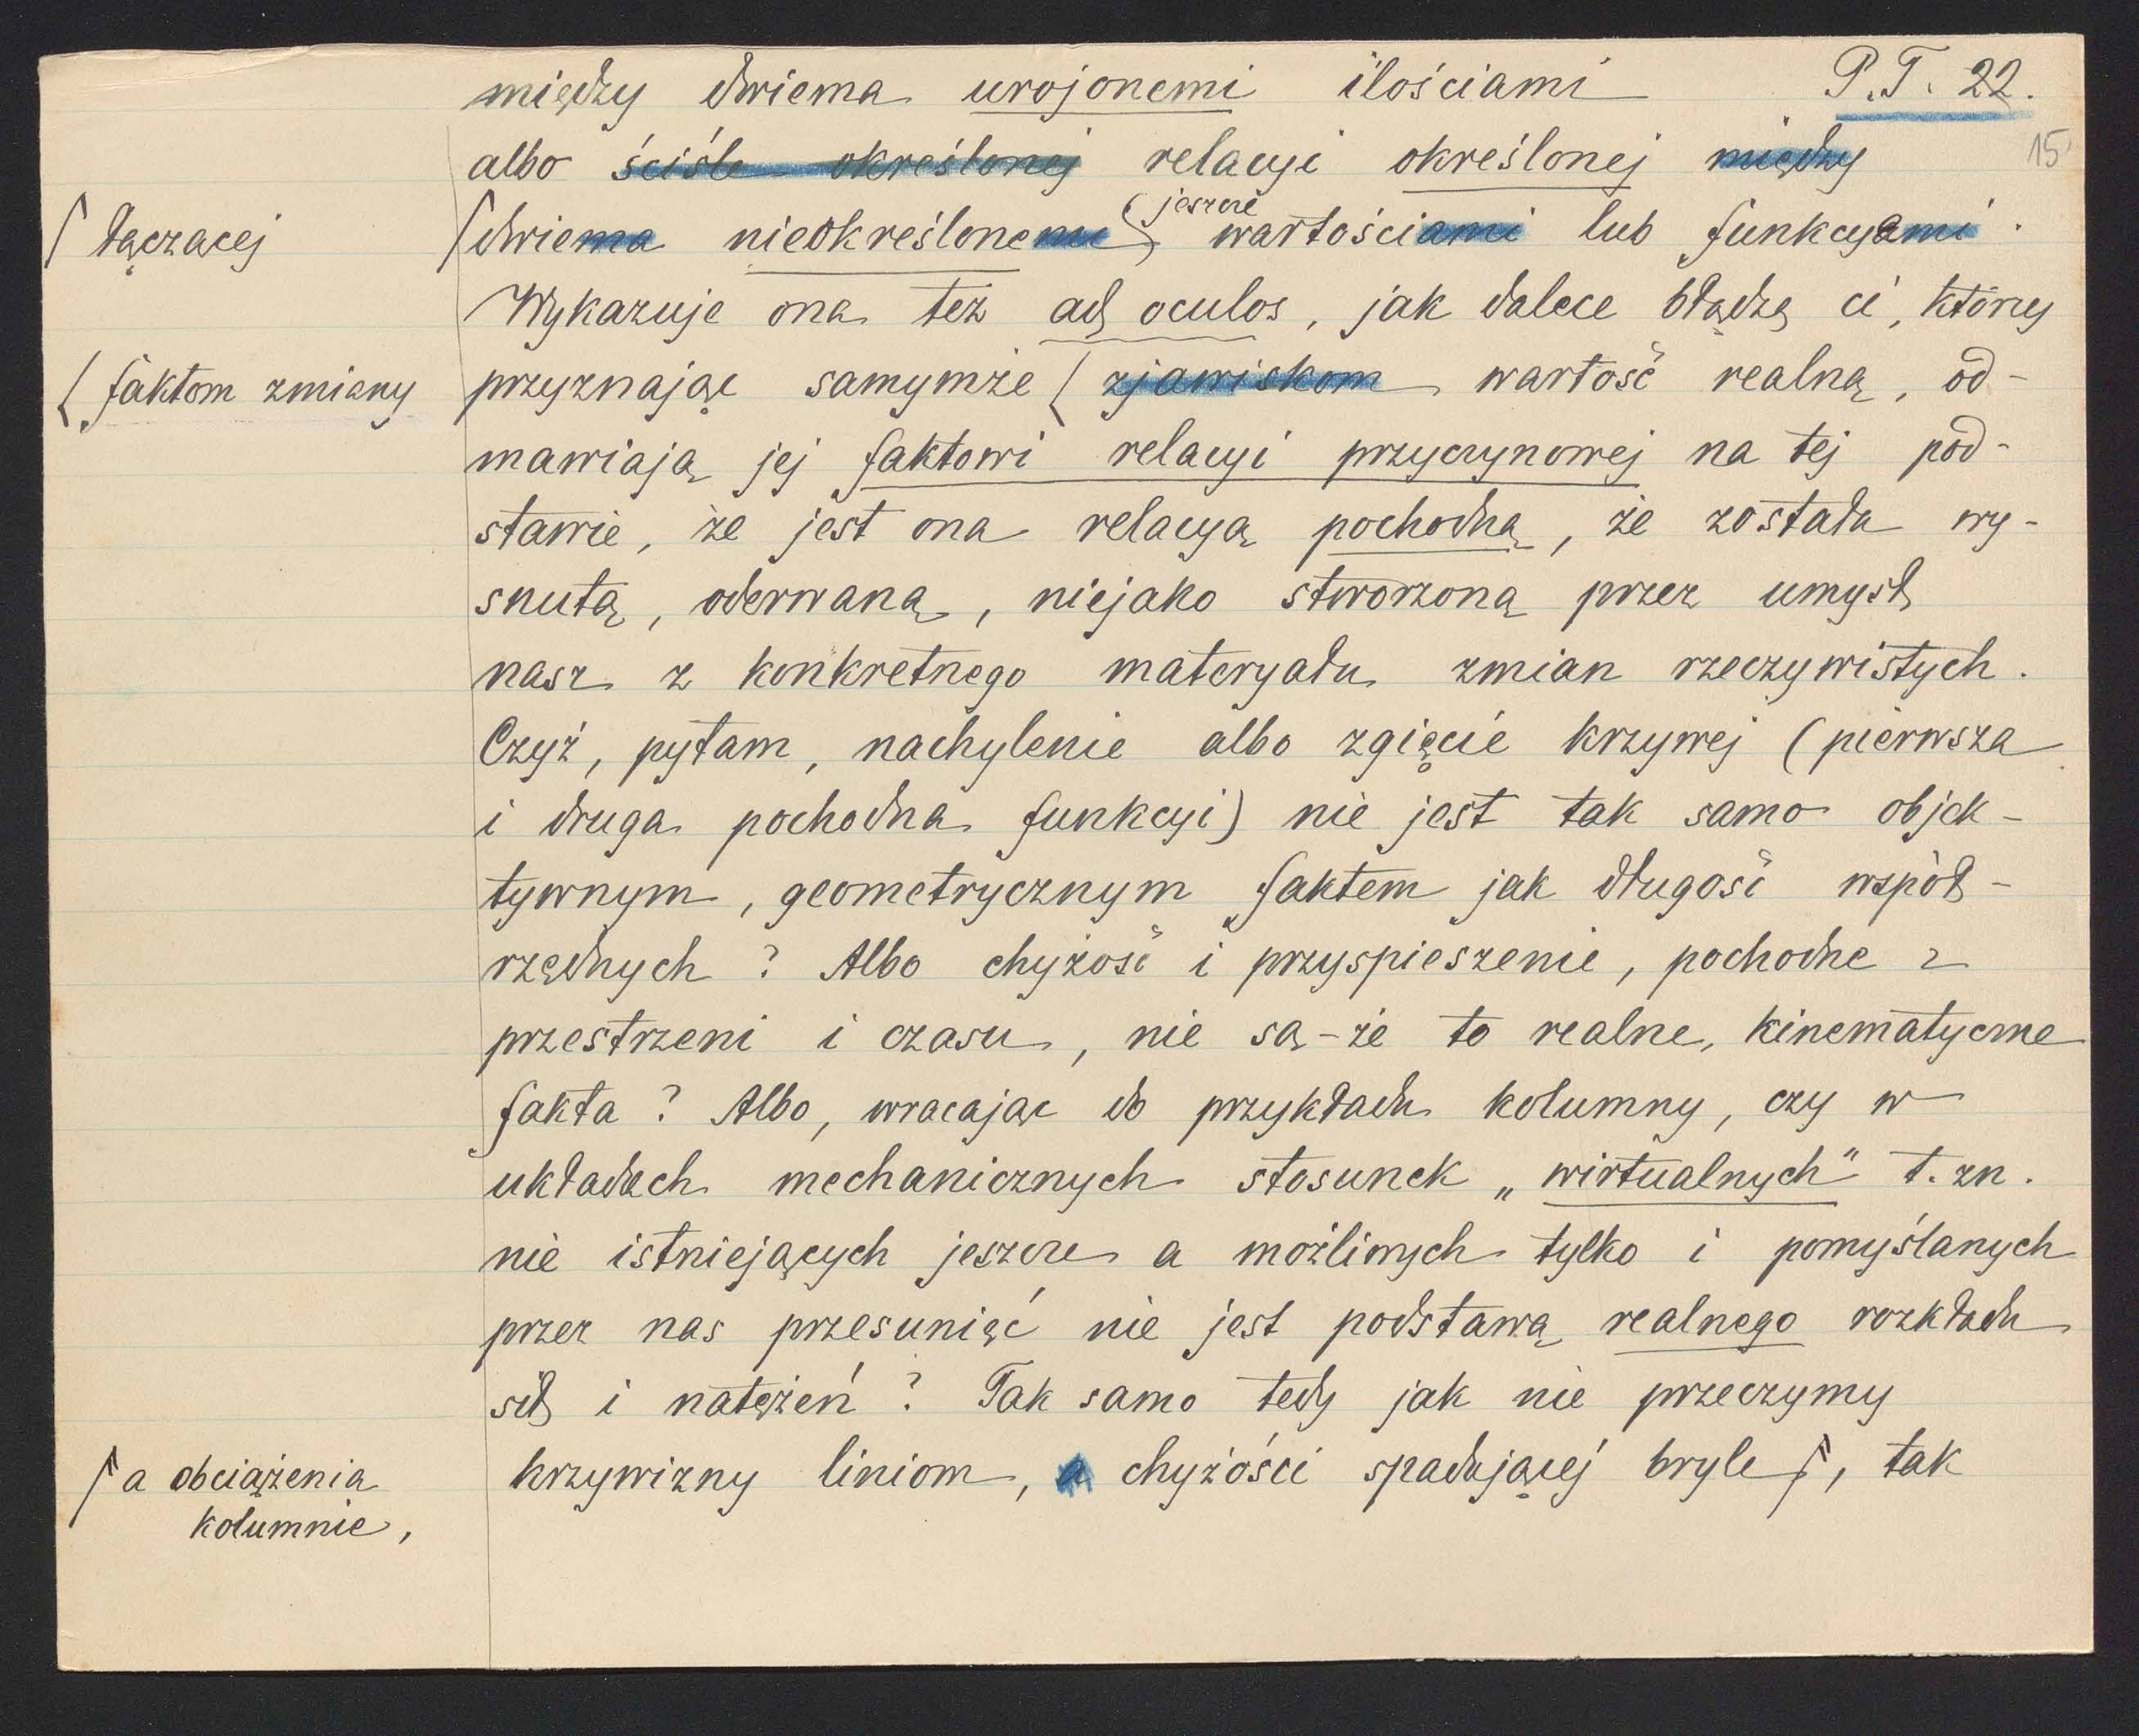 między dwiema urojonemi ilościami P.T. 22.
albo ściśle określonej relacyi określonej między 15
łączącej dwiema nieokreślonemi jeszcze wartościami lub funkcyami.
Wykazuje ona też ad oculos, jak dalece błądzą ci, którzy
faktom zmiany przyznając samymże zjawiskom wartość realną, od-
mawiają jej faktowi relacyi przyczynowej na tej pod-
stawie, że jest ona relacyą pochodną, że została wy-
snutą, oderwaną, niejako stworzoną przez umysł
nasz z konkretnego materyału zmian rzeczywistych.
Czyż, pytam, nachylenie albo zgięcie krzywej (pierwsza
i druga pochodna funkcyi) nie jest tak samo objek-
tywnym, geometrycznym faktem jak długość współ-
rzędnych? Albo chyżość i przyspieszenie, pochodne z
przestrzeni i czasu, nie są-że to realne, kinematyczne
fakta? Albo, wracając do przykładu kolumny, czy w
układach mechanicznych stosunek „wirtualnych" t. zn.
nie istniejących jeszcze a możliwych tylko i pomyślanych
przez nas przesunięć nie jest podstawą realnego rozkładu
sił i natężeń? Tak samo tedy jak nie przeczymy
a obciążenia krzywizny liniom, a chyżości spadającej bryle, tak
kolumnie,